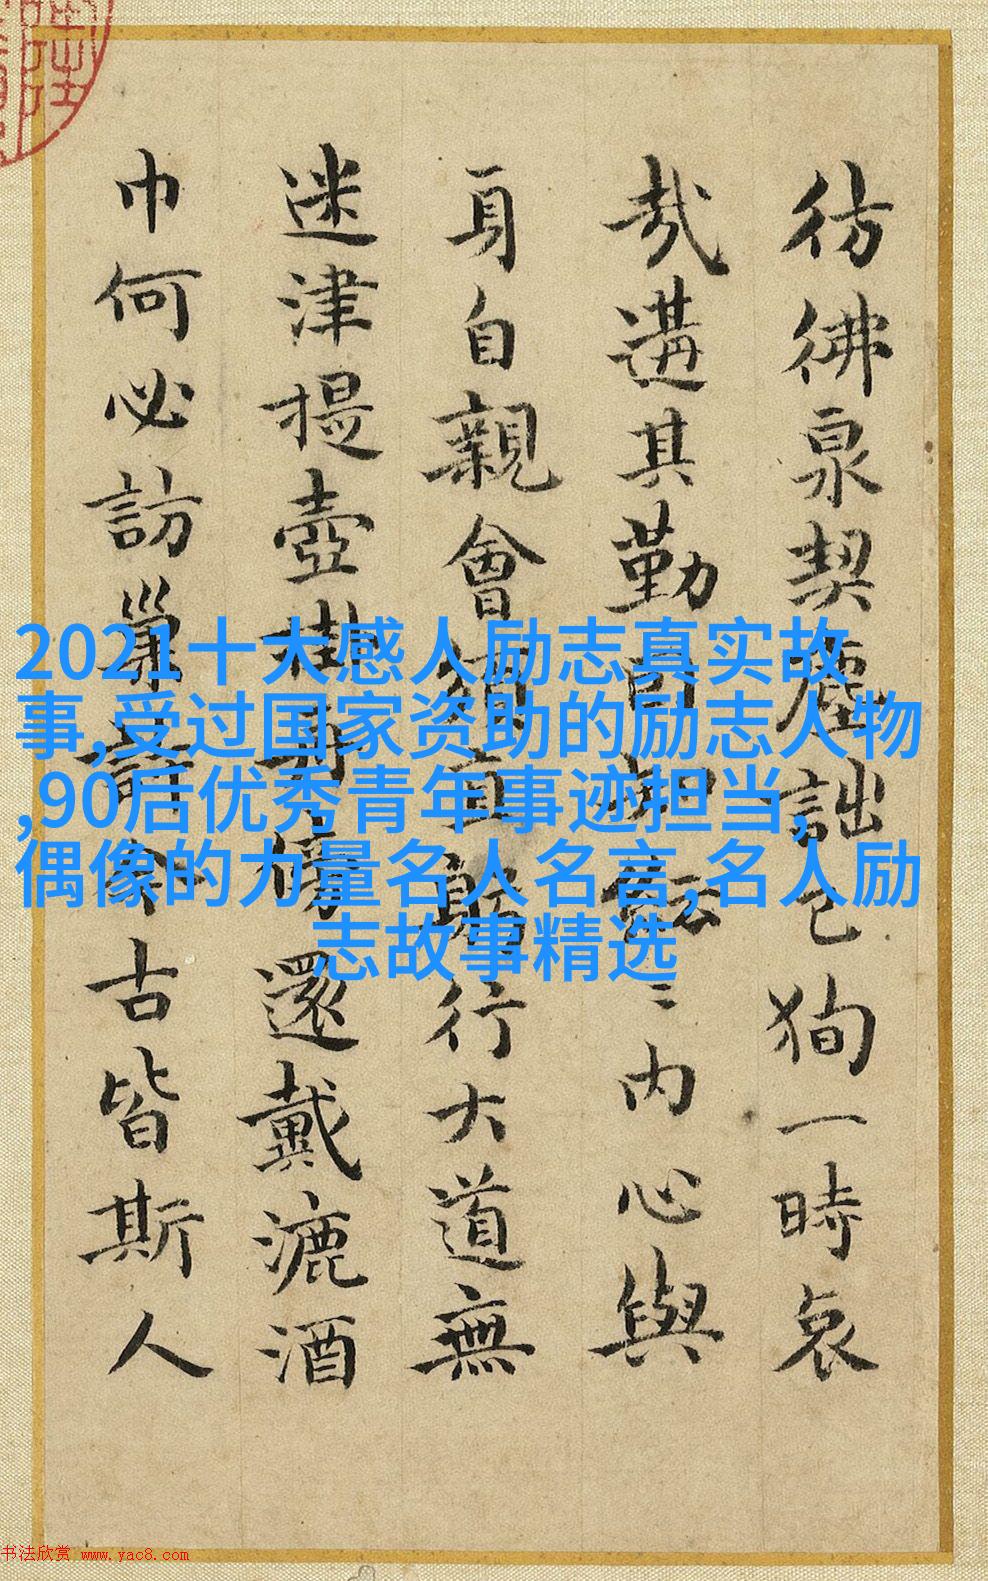 彷彿泉契塵詘已狥一時哀
哉遘其勤内心與
身自親會須直躬行大道無
迷津提壺掛還戴漉酒
巾何必訪巢許今古皆斯人
2021十大感人励志真实故
事,受过国家资助的励志人物
,90后优秀青年事迹担当,
偶像的力量名人名言,名人励
志故事精选
书法欣赏 www.yac8.com